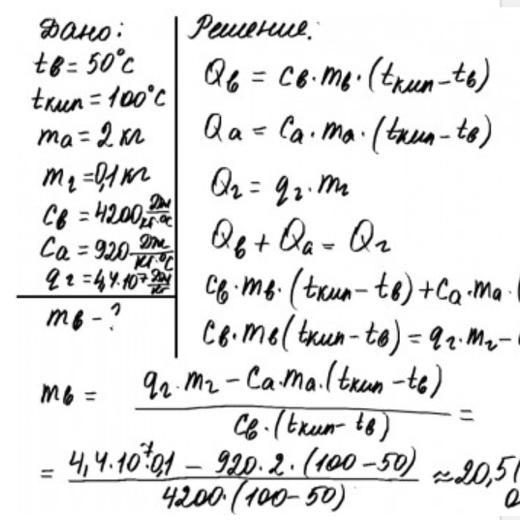 Дано:
tв = 50°С
tкип = 100°С
mа = 2 кг
mг = 0,1 кг
Св = 4200 Дж/кг·°С
Са = 920 Дж/кг·°С
qг = 4,4·10⁷ Дж/кг
mв - ?
Решение:
Qв = Св·mв·(tкип - tв)
Qа = Са·mа·(tкип - tв)
Qг = qг·mг
Qв + Qа = Qг
Св·mв·(tкип - tв) + Са·mа·(
Св·mв(tкип - tв) = qг·mг -
mв = qг·mг - Са·mа·(tкип - tв) / Св·(tкип - tв) =
= 4,4·10⁷·0,1 - 920·2·(100-50) / 4200·(100-50) ≈ 20,5(